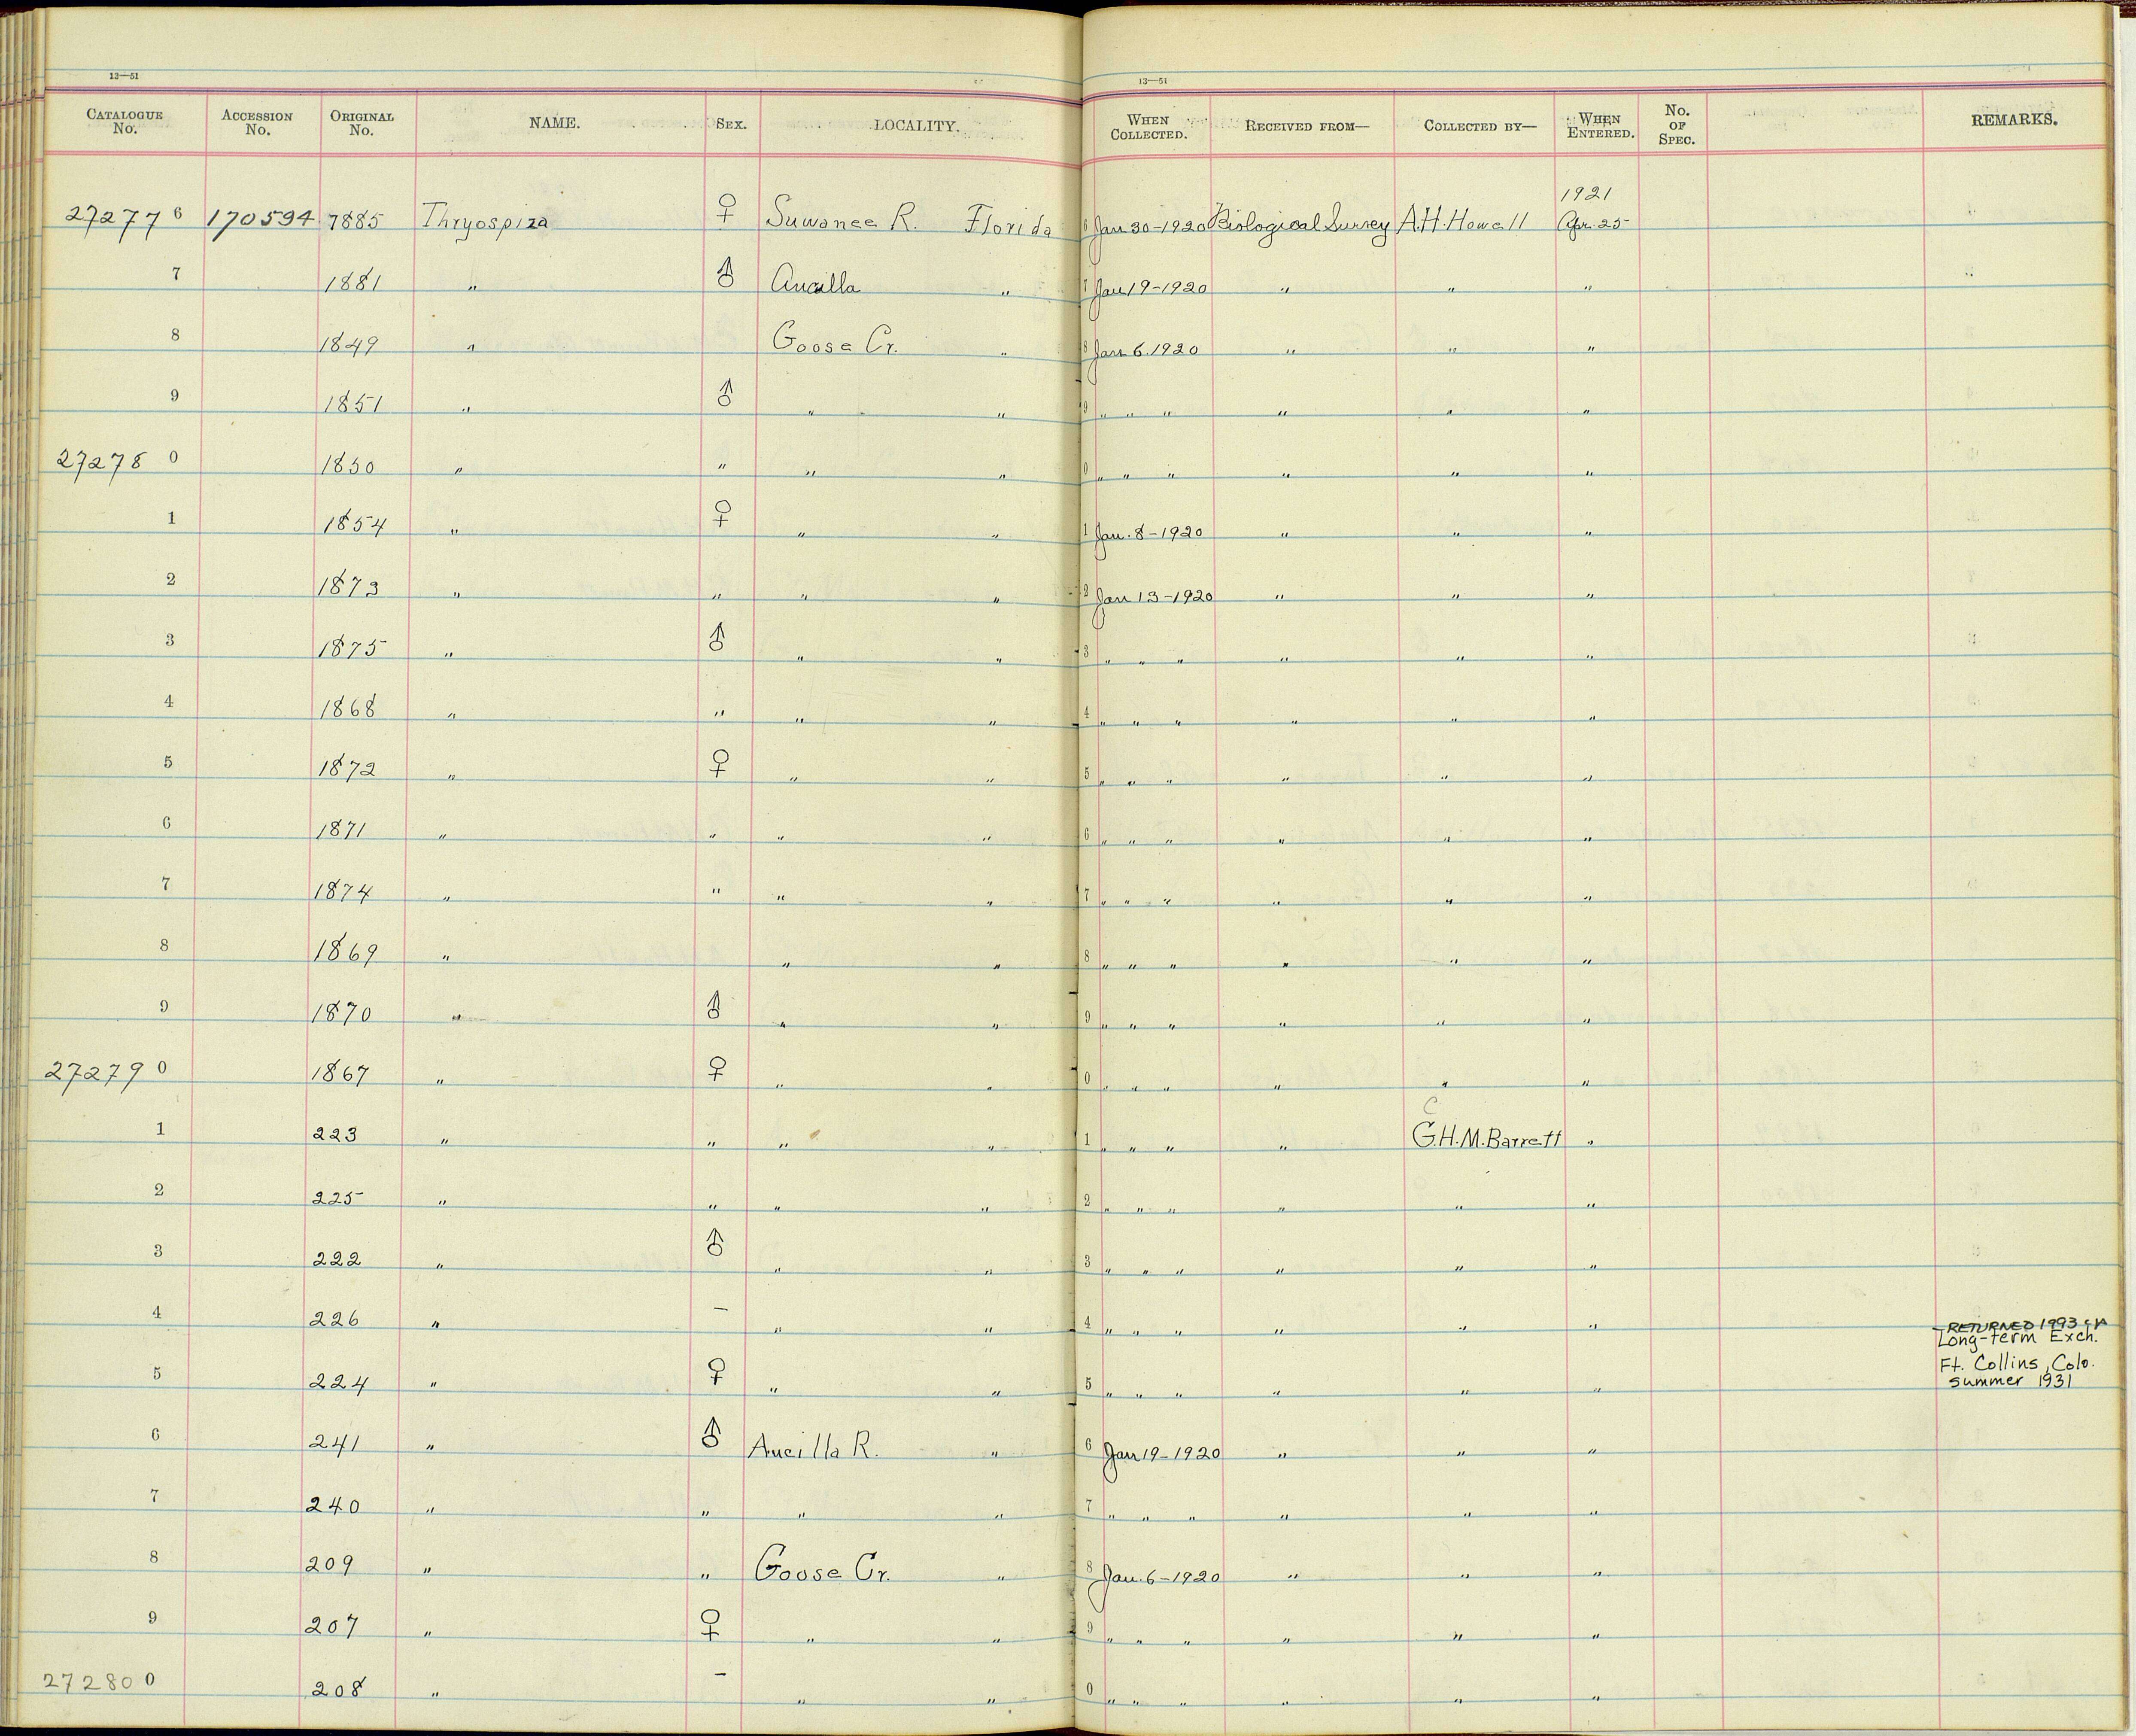 13—51 13—51
CATALOGUE No. ACCESSION No. ORIGINAL No. NAME. SEX. LOCALITY. WHEN COLLECTED. RECEIVED FROM— COLLECTED BY— WHEN ENTERED. No. OF SPEC. REMARKS.
1921
27277 6 170594 1885 Thryospiza ♀ Suwanee R. Florida 6 Jan 30-1920 Biological Survey A.H. Howell Apr. 25
7 1881 " ♂ Aucilla " 7 Jan 19-1920 " " "
8 1849 " Goose Cr. " 8 Jan 6.1920 " " "
9 1851 " ♂ " " 9 " " " " " "
27278 0 1850 " " " " 0 " " " " " "
1 1854 " ♀ " " 1 Jan. 8-1920 " " "
2 1873 " " " " 2 Jan 13-1920 " " "
3 1875 " ♂ " " 3 " " " " " "
4 1868 " " " " 4 " " " " " "
5 1872 " ♀ " " 5 " " " " " "
6 1871 " " " " 6 " " " " " "
7 1874 " " " " 7 " " " " " "
8 1869 " " " 8 " " " " " "
9 1870 " ♂ " " 9 " " " " " "
27279 0 1867 " ♀ " " 0 " " " " " "
C
1 223 " " " " 1 " " " " G.H.M. Barrett "
2 225 " " " " 2 " " " " " "
3 222 " ♂ " " 3 " " " " " "
4 226 " – " " 4 " " " " " "
RETURNED 1993
Long-term Exch.
Ft. Collins, Colo.
summer 1931
5 224 " ♀ " " 5 " " " " " "
6 241 " ♂ Aucilla R. " 6 Jan 19-1920 " " "
7 240 " " " " 7 " " " " " "
8 209 " " Goose Cr. " 8 Jan. 6-1920 " " "
9 207 " ♀ " " 9 " " " " " "
27280 0 208 " – " " 0 " " " " " "